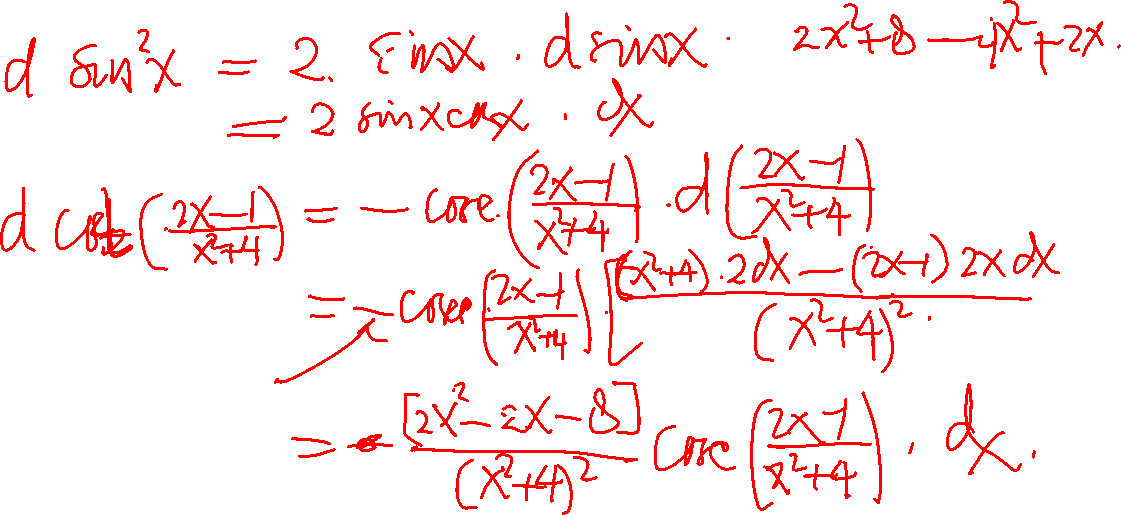 d sin²x = 2. sinx · d sinx · 2x²+8 — 4x²+2x.
= 2 sinx cosx · dx
d cot (2x-1 / x²+4) = - cosec (2x-1 / x²+4) · d (2x-1 / x²+4)
= - cosec (2x-1 / x²+4) · [(x²+4) · 2dx - (2x-1) 2x dx / (x²+4)² ·
= [2x² - 2x - 8] / (x²+4)² cosec (2x-1 / x²+4) · dx.